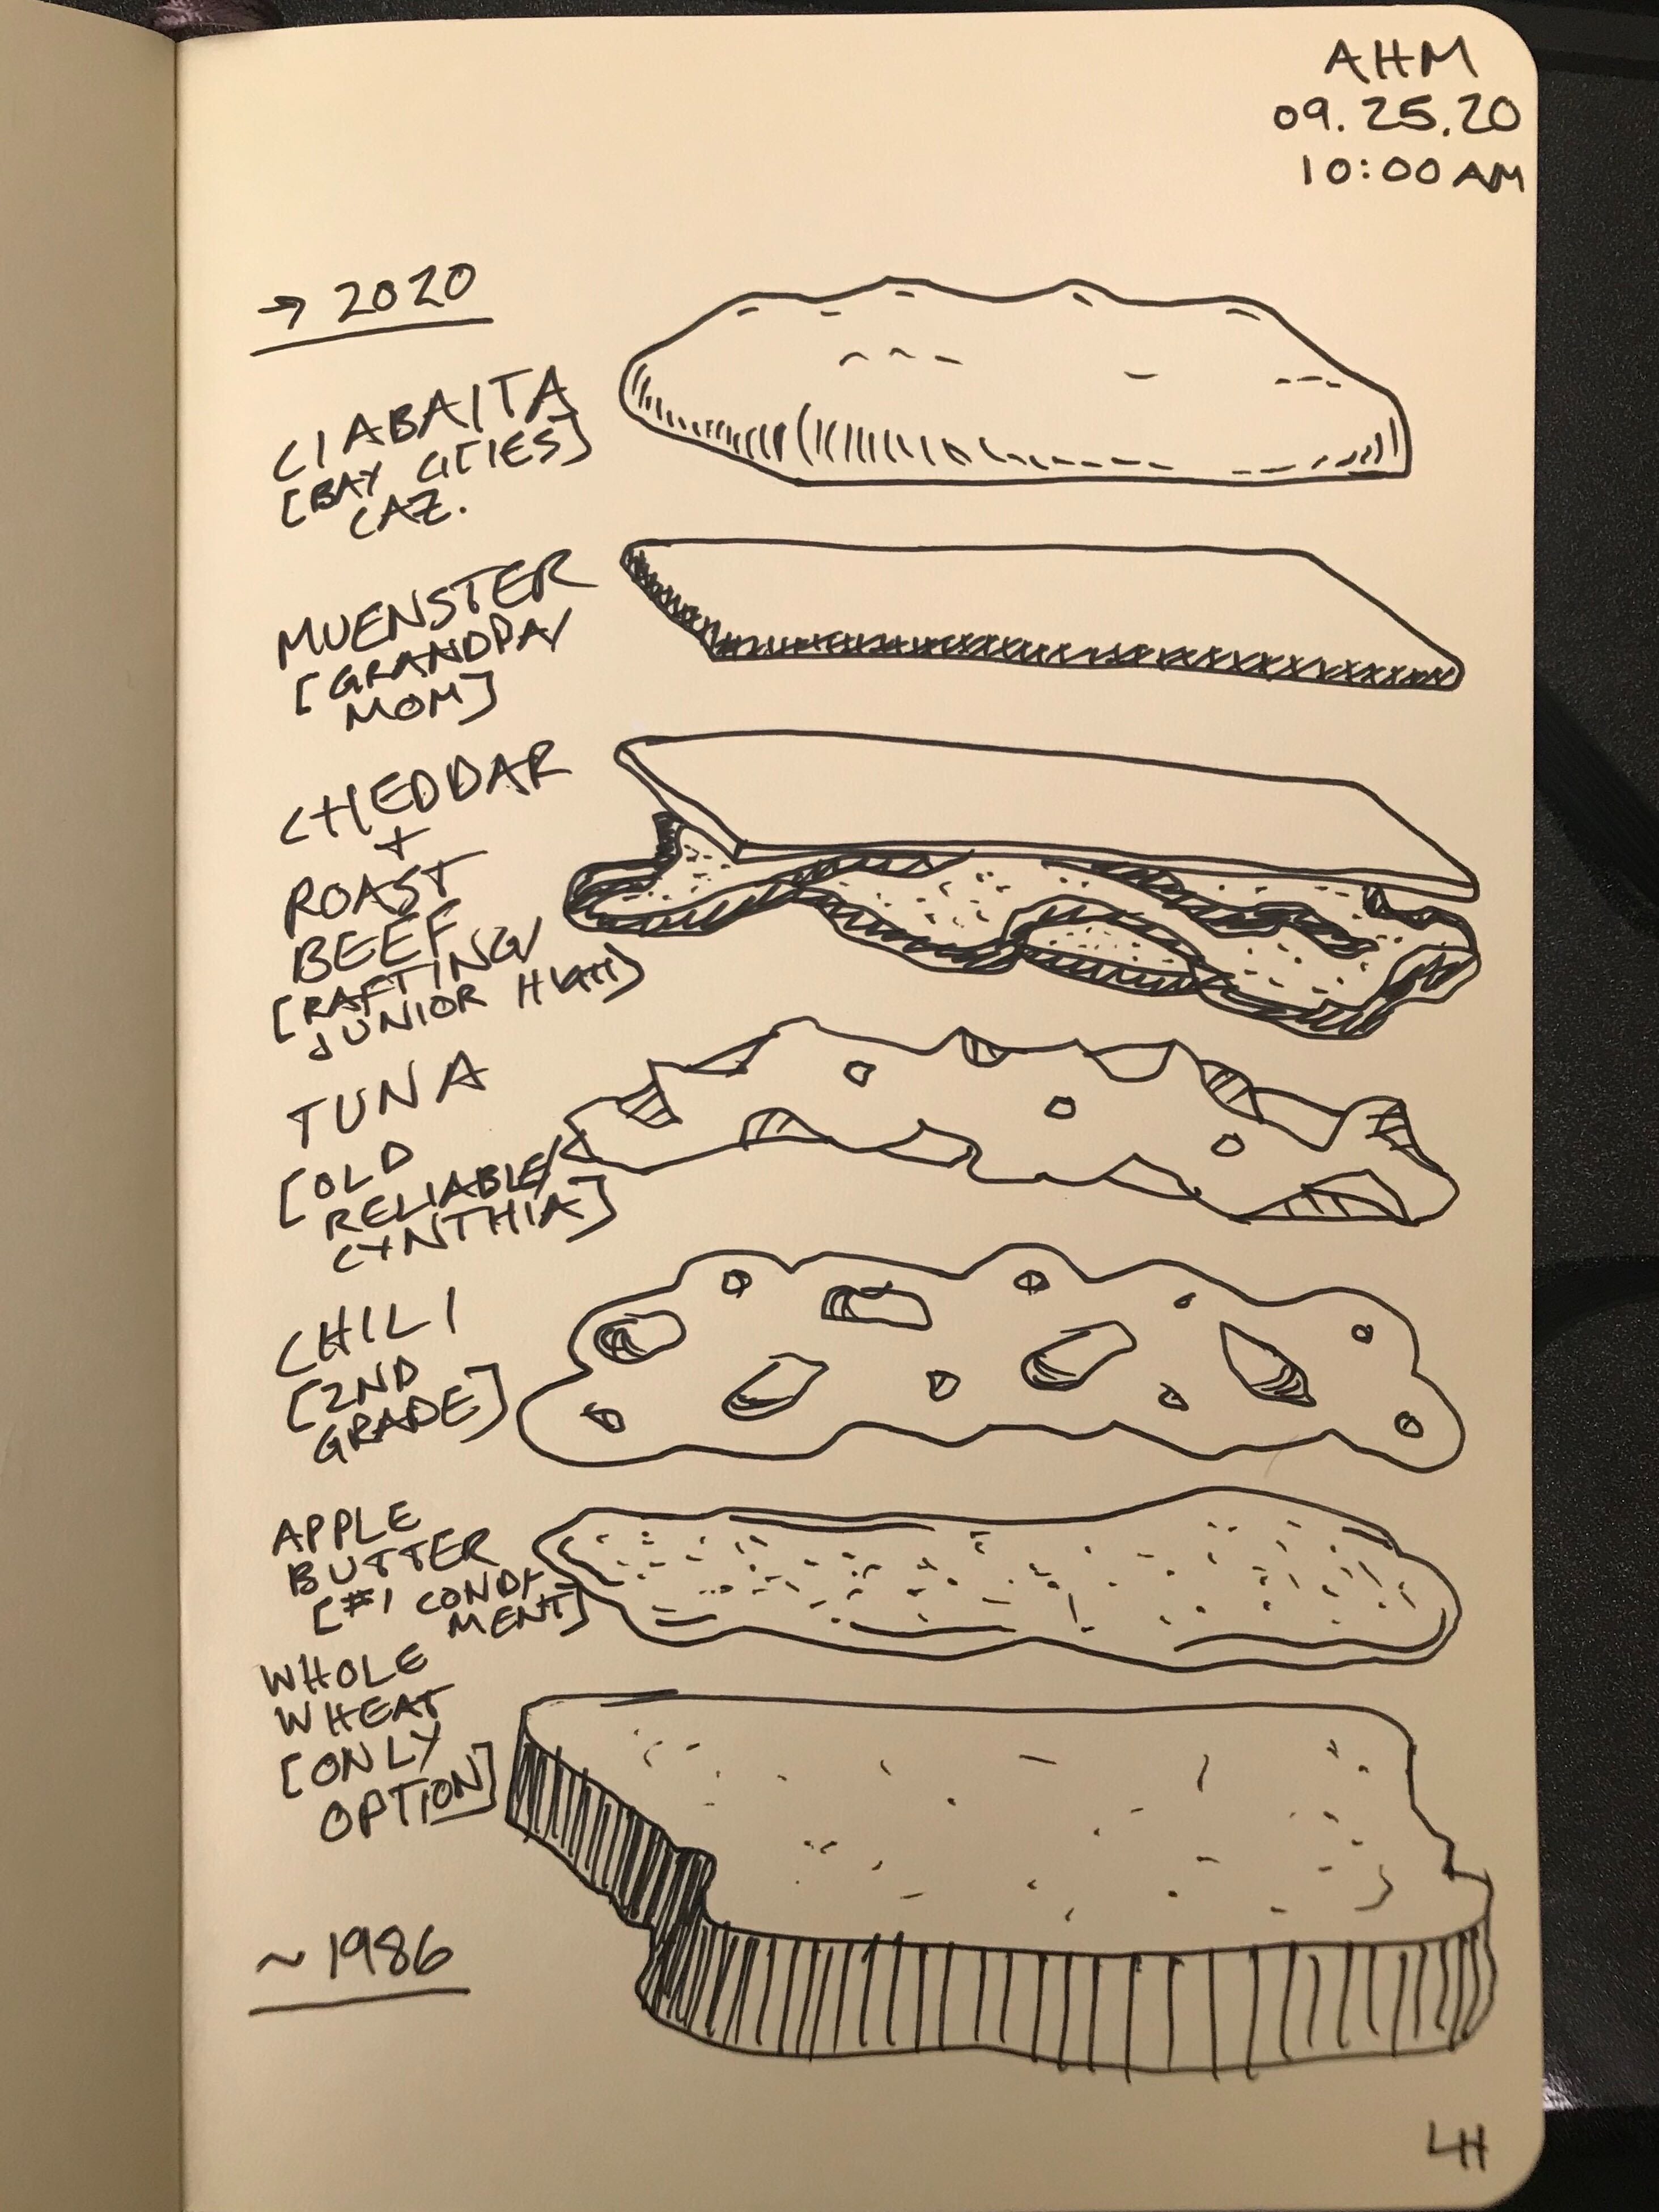 AHM
09.25.20
10:00 AM
→ 2020
CIABATTA
[BAY CITIES]
CAZ.
MUENSTER
[GRANDPA/
MOM]
CHEDDAR
+
ROAST
BEEF
[RAFTING/
JUNIOR HIGH]
TUNA
[OLD
RELIABLE/
CYNTHIA]
CHILI
[2ND
GRADE]
APPLE
BUTTER
[#1 CONDI-
MENT]
WHOLE
WHEAT
[ONLY
OPTION]
~1986
LH